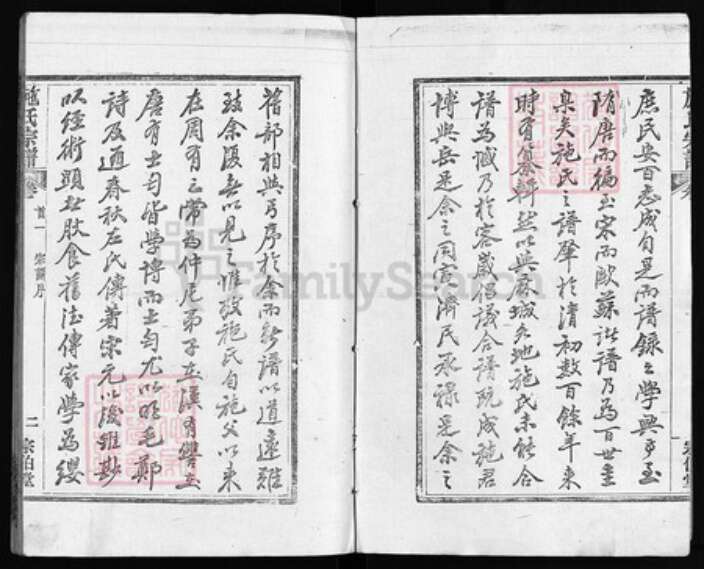 庶民安百志成自是而譜錄之學興焉至
隋唐而徧至宋而歐蘇詤譜乃為百世圭
臬矣施氏之譜肇於清初數百餘年來
時有纂輯然以與麻城各地施氏未能合
譜為憾乃於客歲倡議合譜既成施君
博與岳是余之同寅濟民承祿是余之
舊部相與乃序於余而新譜以道遠難
致余復無以見之惟攷施氏自施父以來
在周有之常為仲尼弟子在漢有讐至
唐有士匄皆學博而士匄尤以明毛鄭
詩及通春秋左氏傳著宋元以後雖尠
以經術顯然肢食舊德傳家學為纓
施氏宗譜
卷
首一
宗譜序
二
宗伯堂
FamilySearch